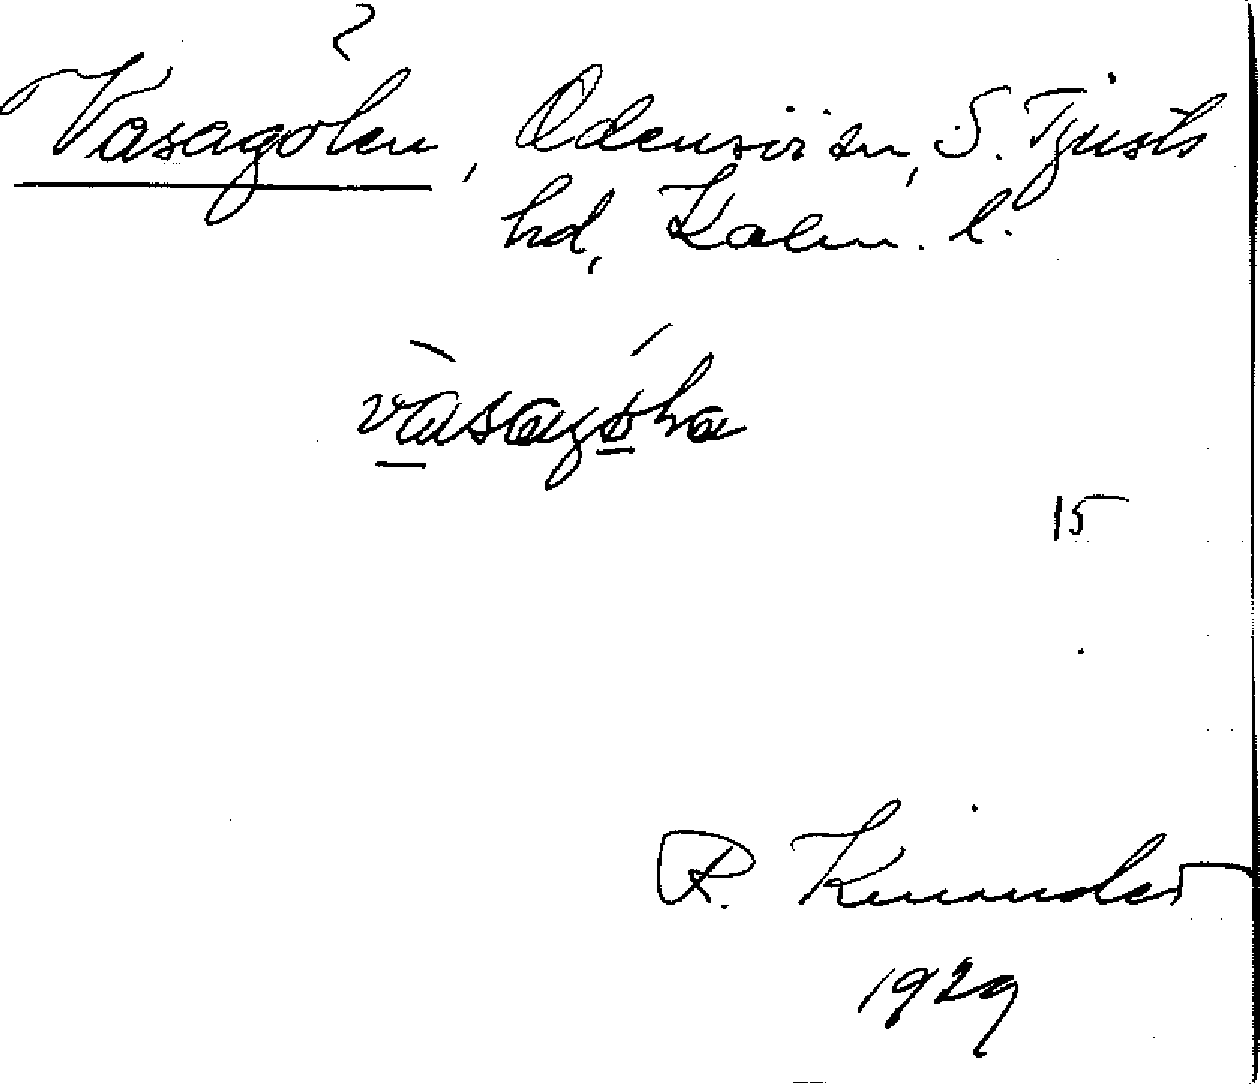 ?
Vasagölen, Odensvi sn, S. Tjusts
hd, Kalm. l.
vàsagǿḷa
15
R. Kinander
1929